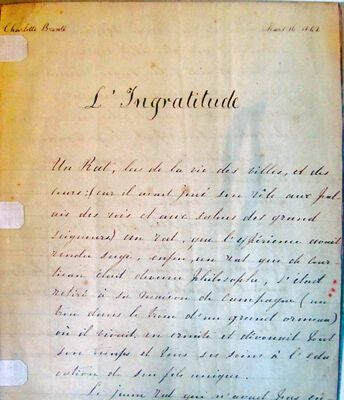 Charlotte Brontë
Mars 16 1842
L'Ingratitude
Un Rat, las de la vie des villes, et des
cours: (car il avait joué son rôle aux Pal-
ais des rois et aux salons des grand
seigneurs) un rat, que l'expérience avait
rendu sage, enfin, un rat qui de cour-
tisan était devenu philosophe, s'était
retiré à sa maison de Campagne (un
trou dans le tronc d'un grand ormeau)
où il vivait en ermite et dévouait tout
son temps et tous ses soins à l'edu-
cation de son fils unique.
Le jeune rat qui n'avait pas